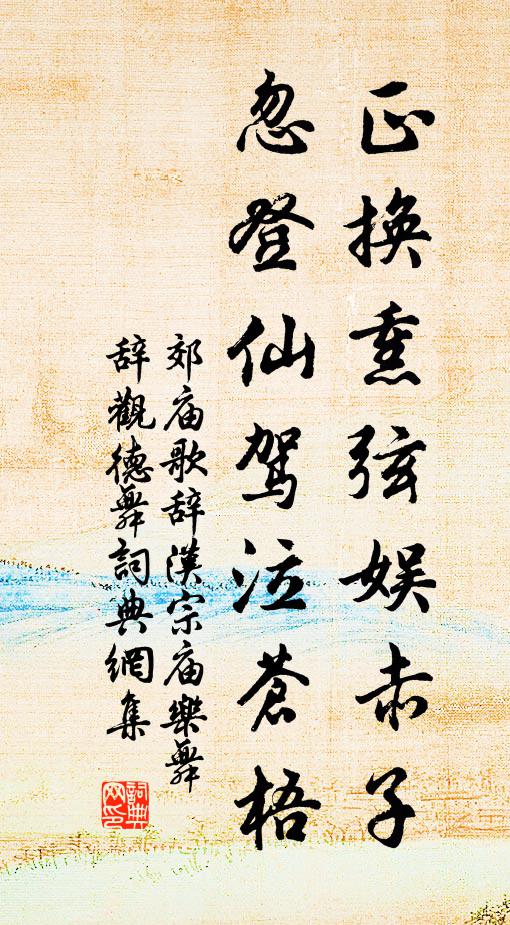 正换熏弦娱赤子
忽登仙驾泣苍梧
郊庙歌辞汉宗庙樂舞
辞觀德舞詞典網集
詞典
网印